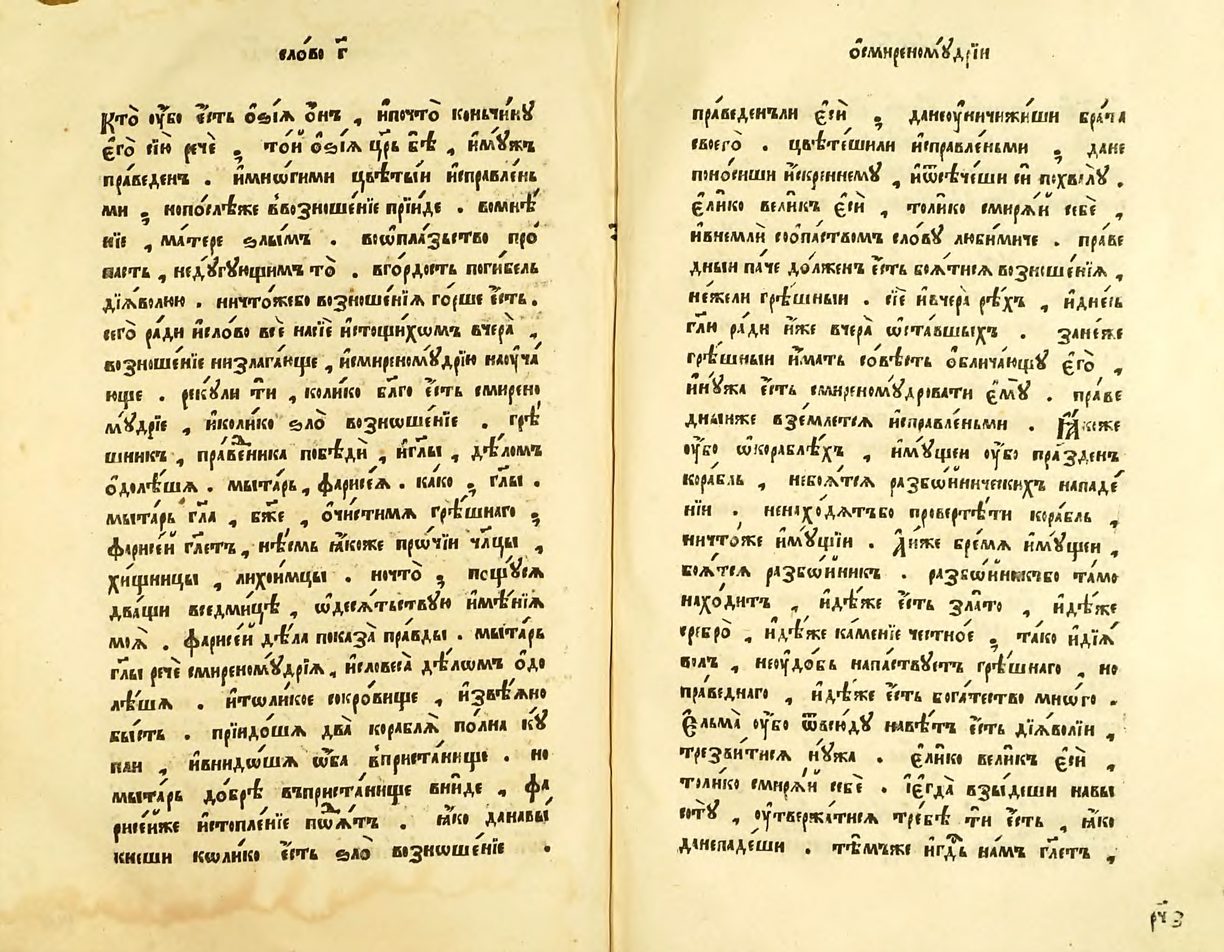 сло́во г҃
Кто̀ ᲂу҆́бо є҆́сть ѻ҆зі́ѧ ѻ҆́нъ , и҆почто̀ коньчи́нꙋ
є҆го̀ сїю̀ речѐ ; то́и ѻ҆зі́ѧ цр҃ь бѣ̀ , и҆мꙋ́жъ
пра́веденъ . и҆мнѡ́гими цвѣ́тыи и҆справле́нь
ми ; нопослѣ́же ввозноше́нїе прїи́де . вомнѣ́
нїе , ма́тере ѕлы́мъ . восѡпла́зьство про́
пасть , недꙋ́гꙋющимъ то̀ . вго́рдость поги́бель
дїѧ́волню . ничто́жебо возноше́нїѧ го́рше є҆́сть .
сего̀ ра́ди и҆сло́во всѐ насїѐ и҆стощи́хѡмъ вчера̀ ,
возноше́нїе низлага́юще , и҆смиреномꙋ́дрїю наᲂуча́
юще . рекꙋ́ли ти , коли́ко бл҃го є҆́сть смирено
мꙋ́дрїе , и҆коли́ко ѕло̀ вознѡше́нїе . грѣ́
шникъ , пра́веⷣника побѣдѝ , и҆гл҃ы , дѣ́ломъ
ѻ҆долѣ́шѧ . мы́тарь , фарисе́ѧ . ка́ко ; гл҃ы .
мы́тарь гл҃а , бж҃е , ѻ҆чи́стимѧ грѣ́шнаго ;
фарисе́й гл҃етъ , нѣ́смь ꙗ҆́коже прѡ́чїи чл҃цы ,
хи́щницы , лихои́мцы . ночто̀ ; пощꙋ́сѧ
два́щи вседми́цѣ , ѡ҆десѧ́тьствꙋю и҆мѣ́нїѧ
моѧ̀ . фарисе́й дѣ́ла показа̀ пра́вды . мы́тарь
гл҃ы речѐ смиреномꙋ́дрїѧ , и҆словеса̀ дѣ́лѡмъ ѻ҆до
лѣ́шѧ . и҆тѡли́кое сокро́вище , и҆звѣ́ѧно
бы́сть . прїидо́шѧ два̀ кораблѧ̀ по́лна кꙋ
пли , и҆внидѡ́шѧ ѡ҆́ба вприста́нище . но
мы́тарь до́брѣ въприста́нище вни́де , фа
рисе́йже и҆стопле́нїе пѡⷣѧ́тъ . ꙗ҆́ко данавы́
кнеши кѡли́ко є҆́сть ѕло̀ вознѡше́нїе .
ѻ҆смиреномꙋ́дрїи
пра́веденъли є҆сѝ ; данеᲂу҆ничижи́ши бра́та
своего̀ . цвѣте́шили и҆справле́ньми ; дане
поно́сиши и҆́скреннемꙋ , и҆ѿсѣче́ши си похвалꙋ̀ .
є҆ли́ко вели́къ є҆сѝ , толи́ко смирѧ́й себѐ ,
и҆внемлѝ соопа́ствомъ сло́вꙋ люби́миче . пра́ве
дныи па́че до́лженъ є҆́сть боѧ́тисѧ возноше́нїѧ ,
не́жели грѣ́шныи . сїѐ и҆вчера̀ рѣ́хъ , и҆дне́сь
гл҃ю ра́ди и҆́же вчера̀ ѡ҆ста́вшыхъ . зане́же
грѣ́шныи и҆́мать со́вѣсть ѻ҆блича́ющꙋ є҆го̀ ,
и҆нꙋ́жа є҆́сть смиреномꙋ́дровати є҆мꙋ̀ . пра́ве
дныиже взе́млетсѧ и҆справле́ньми . Ꙗ҆́коже
ᲂу҆́бо ѡ҆корабле́хъ , и҆мꙋ́щеи ᲂу҆́бо пра́зденъ
кора́бль , небоѧ́тсѧ разбѡ́йническихъ нападе́
нїи . ненахо́дѧтъбо провертѣ́ти кора́бль ,
ничто́же и҆мꙋ́щїи . А҆и҆́же бре́мѧ и҆мꙋ́щеи ,
боѧ́тсѧ разбѡ́йникъ . разбѡ́йникъбо та́мо
нахо́дитъ , и҆дѣ́же є҆́сть зла́то , и҆дѣ́же
сребро̀ , и҆дѣ́же ка́менїе честно́е ; та́ко и҆дїѧ́
волъ , неᲂудо́бь напа́ствꙋетъ грѣ́шнаго , но
пра́веднаго , и҆дѣ́же є҆́сть бога́тество мнѡ́го .
Є҆льма̀ ᲂу҆́бо ѿвсю́дꙋ навѣ́тъ є҆́сть дїѧ́волїи ,
трезви́тисѧ нꙋ́жа . є҆ли́ко вели́къ є҆сѝ ,
толи́ко смирѧ́й себѐ . і҆є҆гда̀ взы́деши навы
сотꙋ̀ , ᲂу҆твержа́тисѧ тре́бѣ ти є҆́сть , ꙗ҆́ко
данепаде́ши . тѣ́мъже и҆гдⷭ҇ь на́мъ гл҃етъ ,
рч҃з